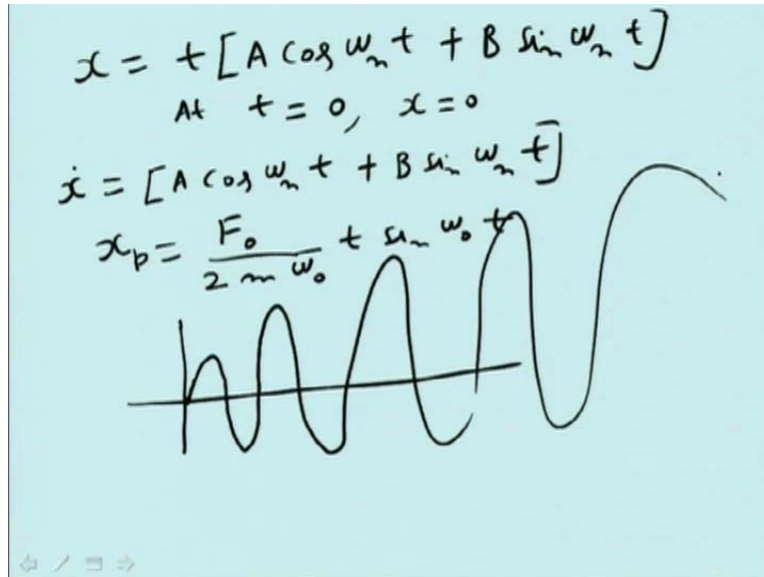 x = t [A cos ω_n t + B sin ω_n t]
At t = 0, x = 0
ẋ = [A cos ω_n t + B sin ω_n t]
x_p = F_0 / 2 m ω_0 t sin ω_0 t